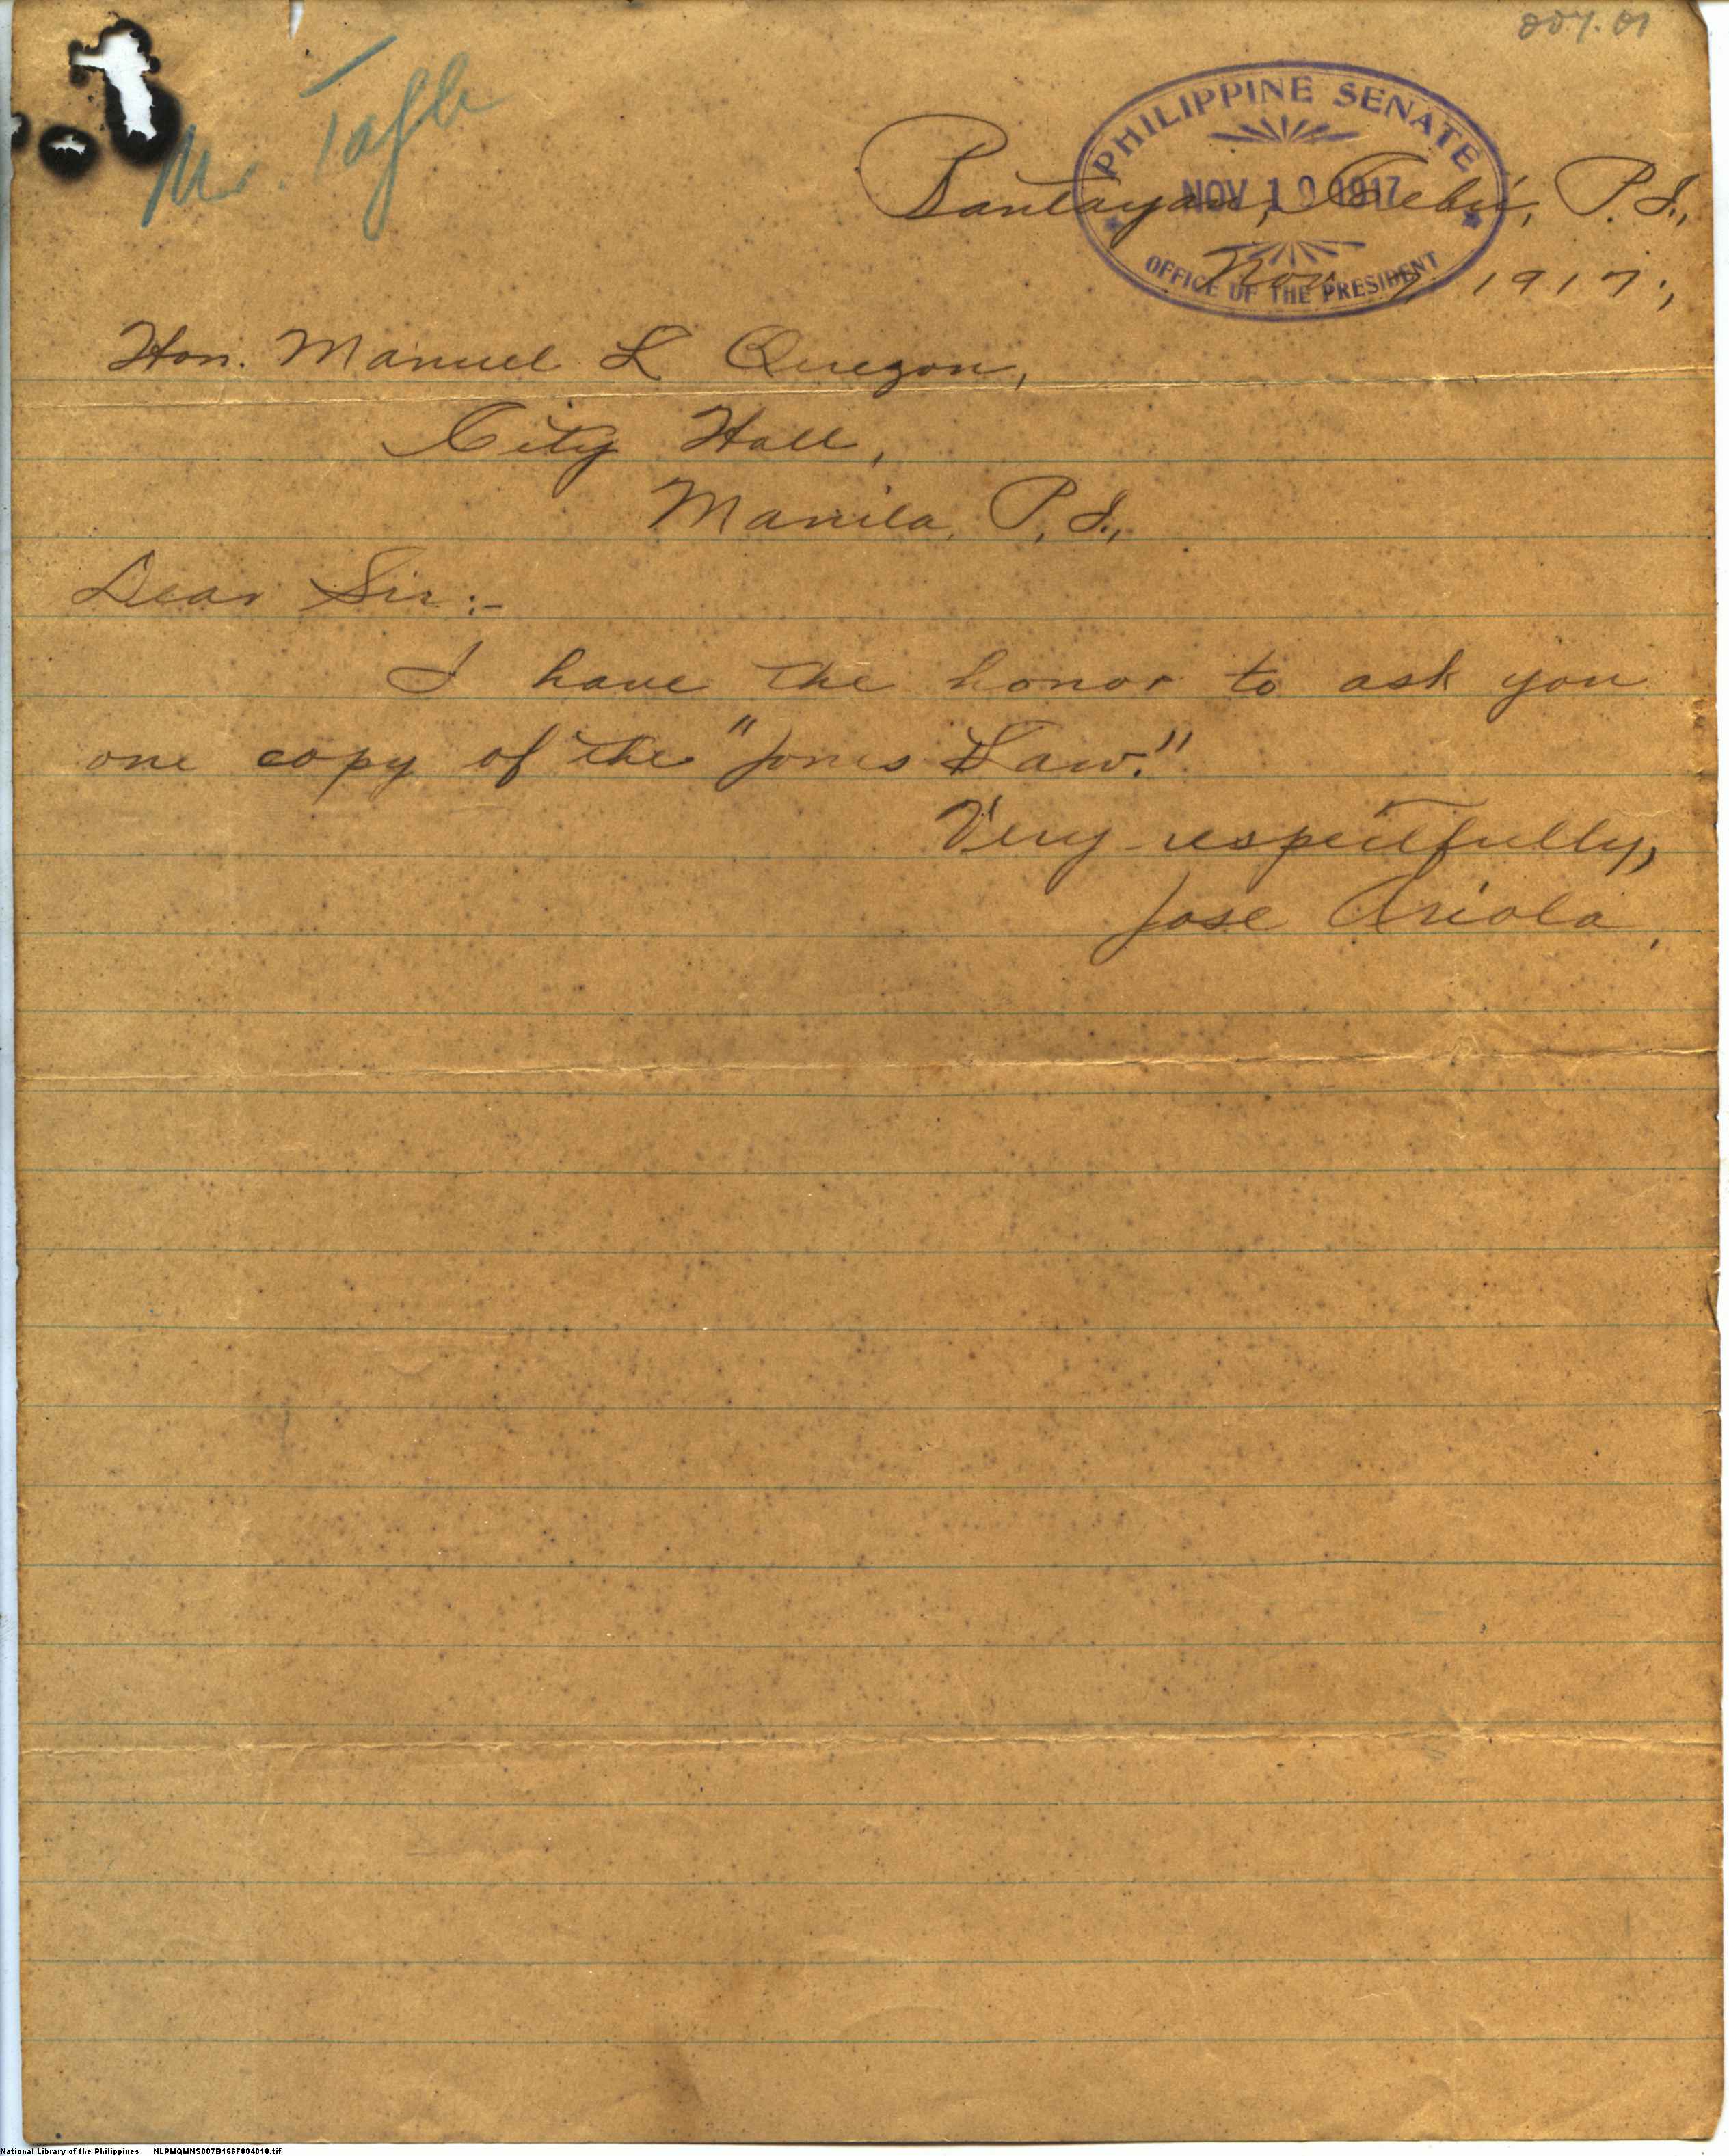 007.01
Mr. Tagle
PHILIPPINE SENATE
NOV 19 1917
OFFICE OF THE PRESIDENT
Bantayan, Cebú, P.I.,
Nov. 1917.,
Hon. Manuel L Quezon,
City Hall,
Manila, P.I.,
Dear Sir:-
I have the honor to ask you
one copy of the "Jones Law."
Very respectfully,
Jose Ariola,
National Library of the Philippines NLPMQMNS007B166F004018.tif